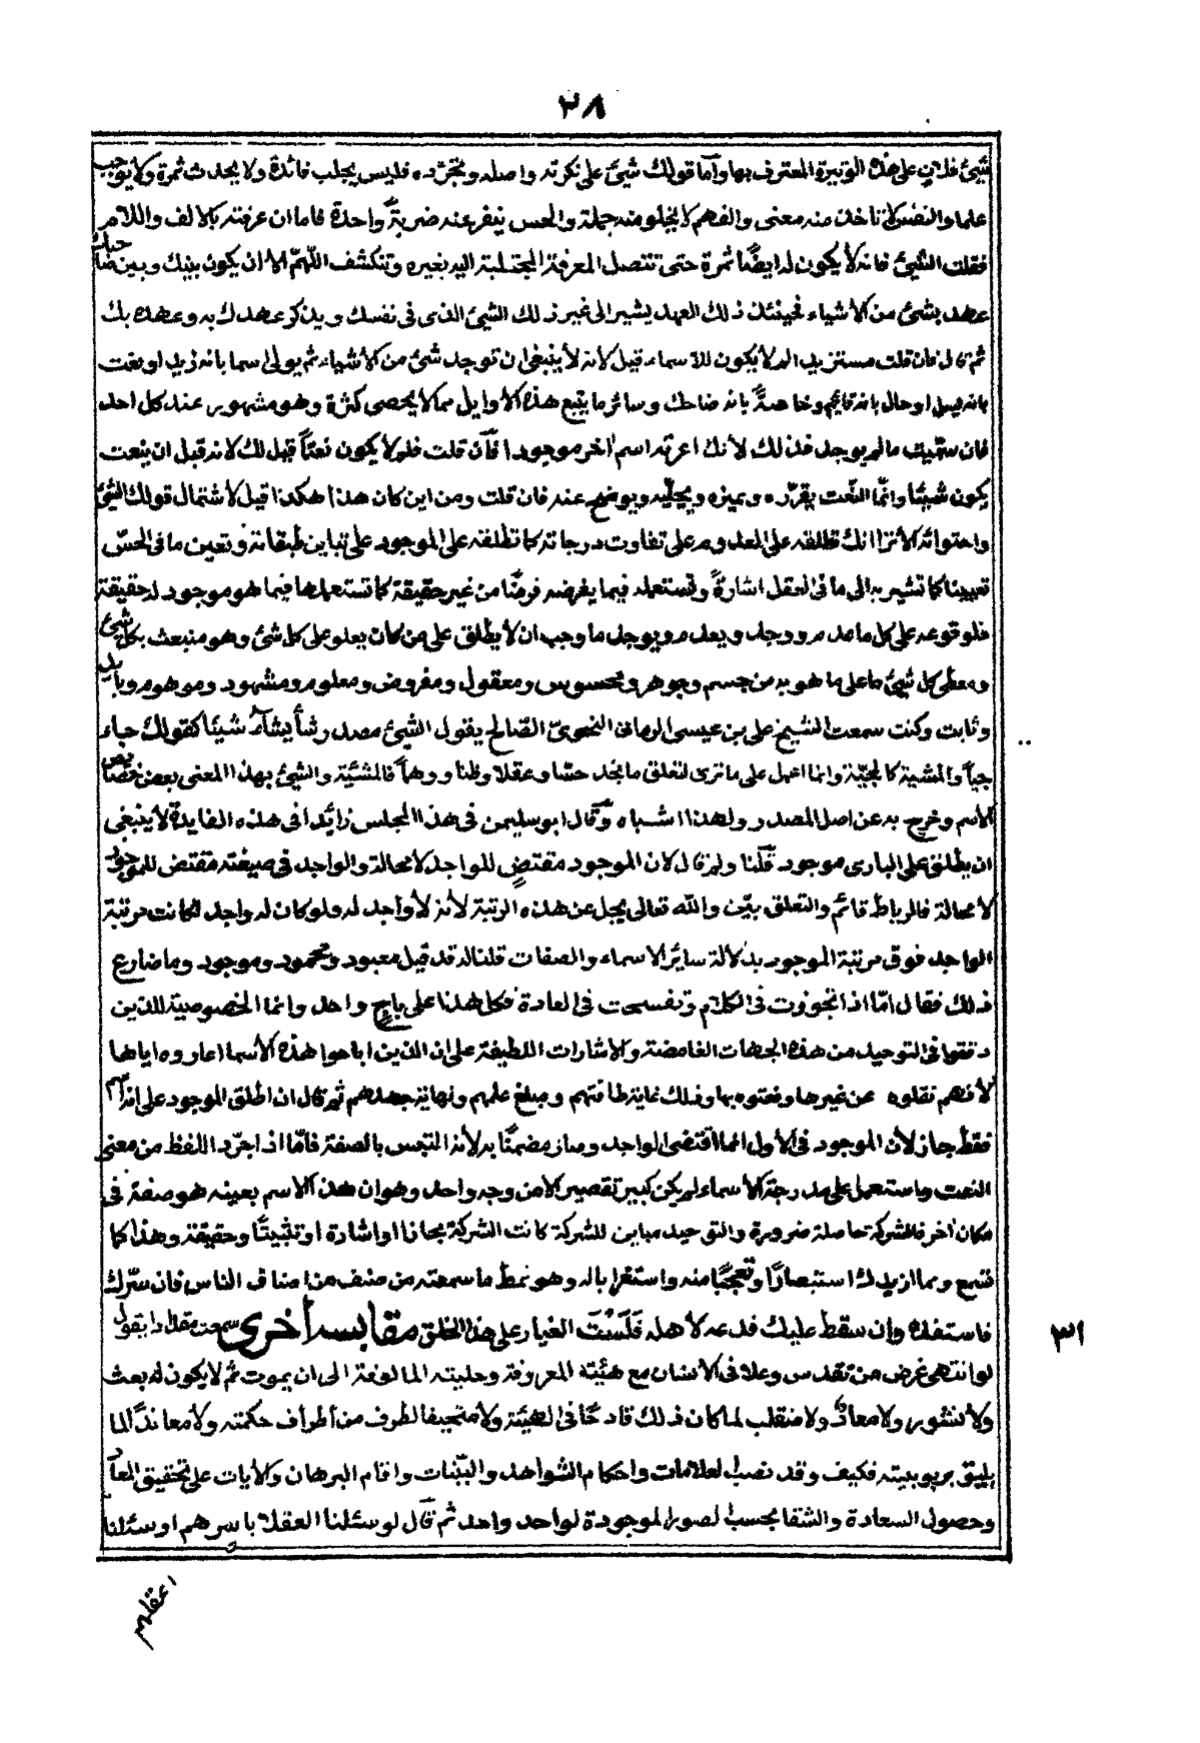 ٢٨
شيئ فلان على هذه الوتيرة المعترف بها وأما قولك شيئ على نكرته واصله وتجرّده فليس يجلب فائدة ولا يحدث ثمرة ولا يوجب
علما والنفس لا تاخذ منه معنى والفهم لا يخلو منه جملة والحس ينفر عنه ضربة واحدة فاما ان عرفته بالالف واللام
فقلت الشيئ فانه لا يكون له ايضًا ثمرة حتى تتصل المعرفة المجتلبة اليه بغيره وتنكشف اللهمّ الا ان يكون بينك وبين صاحبك
عهد بشئ من الاشياء فحينئذ ذلك العهد يشير الى غير ذلك الشيئ الذى فى نفسك ويذكر عهدك به وعهده بك
ثم قال فان قلت مستزيد الم لا يكون للاسماء قيل لانه لا ينبغى ان توجد شئ من الاشياء ثم يولى اسما بانه زيد او نعت
بانه ليس او حال بانه قايم وخاصةً بانه ضاحك وسائر ما يتبع هذه الاوايل مما لا يحصى كثرة وهو مشهور عند كل احد
فان سمّيت ما لم يوجد فذلك لأنك اعرته اسم اخر موجود فان قلت فلم لا يكون نعتاً قيل لك لانه قبل ان ينعت
يكون شيئا وانّما النّعت يقرّره ويميزه ويحلّيه ويوضح عنه فان قلت ومن اين كان هذا هكذا قيل لاشتمال قولك الشئ
واحتوائه الا ترا انك تطلقه على المعدوم على تفاوت درجاته كما تطلقه على الموجود على تباين طبقاته وتعين ما فى الحسّ
تعيينا كما تشير به الى ما فى العقل اشارةً وتستعمله فيما يفرضه فرضًا من غير حقيقة كما تستعملها فيما هو موجود لحقيقة
فلوقوعه على كل ما عدم ووجد ويعدم ويوجد ما وجب ان لا يطلق على من كان يعلو على كل شئ وهو منبعث بكل شئ
ومعطى كل شيئ ما على ما هو به من جسم وجوهر ومحسوس ومعقول ومفروض ومعلوم ومشهود وموهوم وبايد
وثابت وكنت سمعت الشيخ على بن عيسى الرمانى النحوىّ الصّالح يقول الشيئ مصدر شأ يشآء شيئا كقولك جاء
جيأ والمشية كالمجيّة وانما اعمل على ما ترى لتعلق ما نجد حسّا وعقلا وظنا ووهماً فالمشيّة والشيئ بهذا المعنى بعض خصايص
الاسم وخرج به عن اصل المصدر ولهذا اشباه وقال ابو سليمن فى هذا المجلس زائدا فى هذه الفايدة لا ينبغى
ان يطلق على البارى موجود قلنا ولم قال لان الموجود مقتضٍ للواجد لا محالة والواجد فى صيغته مقتض للموجود
لا محالة فالرباط قائم والتعلق بيّن والله تعالى يجل عن هذه الرتبة لأنه لا واجد له ولو كان له واجد لكانت مرتبة
الواجد فوق مرتبة الموجود بدلالة سائر الاسماء والصفات قلنا له قد قيل معبود ومحمود وموجود وما ضارع
ذلك فقال امّا اذا تجوزت فى الكلام وتفسحت فى العادة فكل هذا على باج واحد وانما الخصوصية للذين
دققوا فى التوحيد من هذه الجهات الغامضة والاشارات اللطيفة على ان الذين اباحوا هذه الأسما اعاروه اياها
لانهم نقلوه عن غيرها ونعتوه بها وذلك غاية طاقتهم ومبلغ علمهم ونهاية جهدهم ثم قال ان اطلق الموجود على انه اسم
فقط جاز لأن الموجود فى الأول انما اقتضى الواجد وصار مضمنًا به لأنه التبس بالصفة فامّا اذا جرّد اللفظ من معنى
النعت واستعمل على مدرجة الاسماء لم يكن كبير تقصير الا من وجه واحد وهو ان هذا الاسم بعينه هو صفة فى
مكان اخر فالشركة حاصلة ضرورة والتوحيد مباين للشركة كانت الشركة مجازا او اشارة او تثبيتًا وحقيقة وهذا كما
تسمع ومما ازيدك استبصارًا وتعجّبًا منه واستغرابا له وهو نمط ما سمعته من صنف من اصناف الناس فان سرّك
فاستفده وان سقط عليك فدعه لأهله فلَسْتَ الغيار على هذا الخلق مقابسه أخرى سمعت مقداد ايقول
٣١
لو انتهى غرض من تقدس وعلا فى الانسان مع هيئته المعروفة وحليته المالوفة الى ان يموت ثم لا يكون له بعث
ولا نشور ولا معادٌ ولا منقلب لما كان ذلك قادحًا فى الهيئة ولا متحيفا لطرف من أطراف حكمته ولا معاندًا لما
يليق بربوبيته فكيف وقد نصب لعلامات واحكام الشواهد والبيّنات واقام البرهان والايات على تحقيق المعاد
وحصول السعادة والشقا بحسب لصور الموجودة لواحد واحد ثم قال لو سئلنا العقلاء باسرهم او سئلنا
اعقلهم